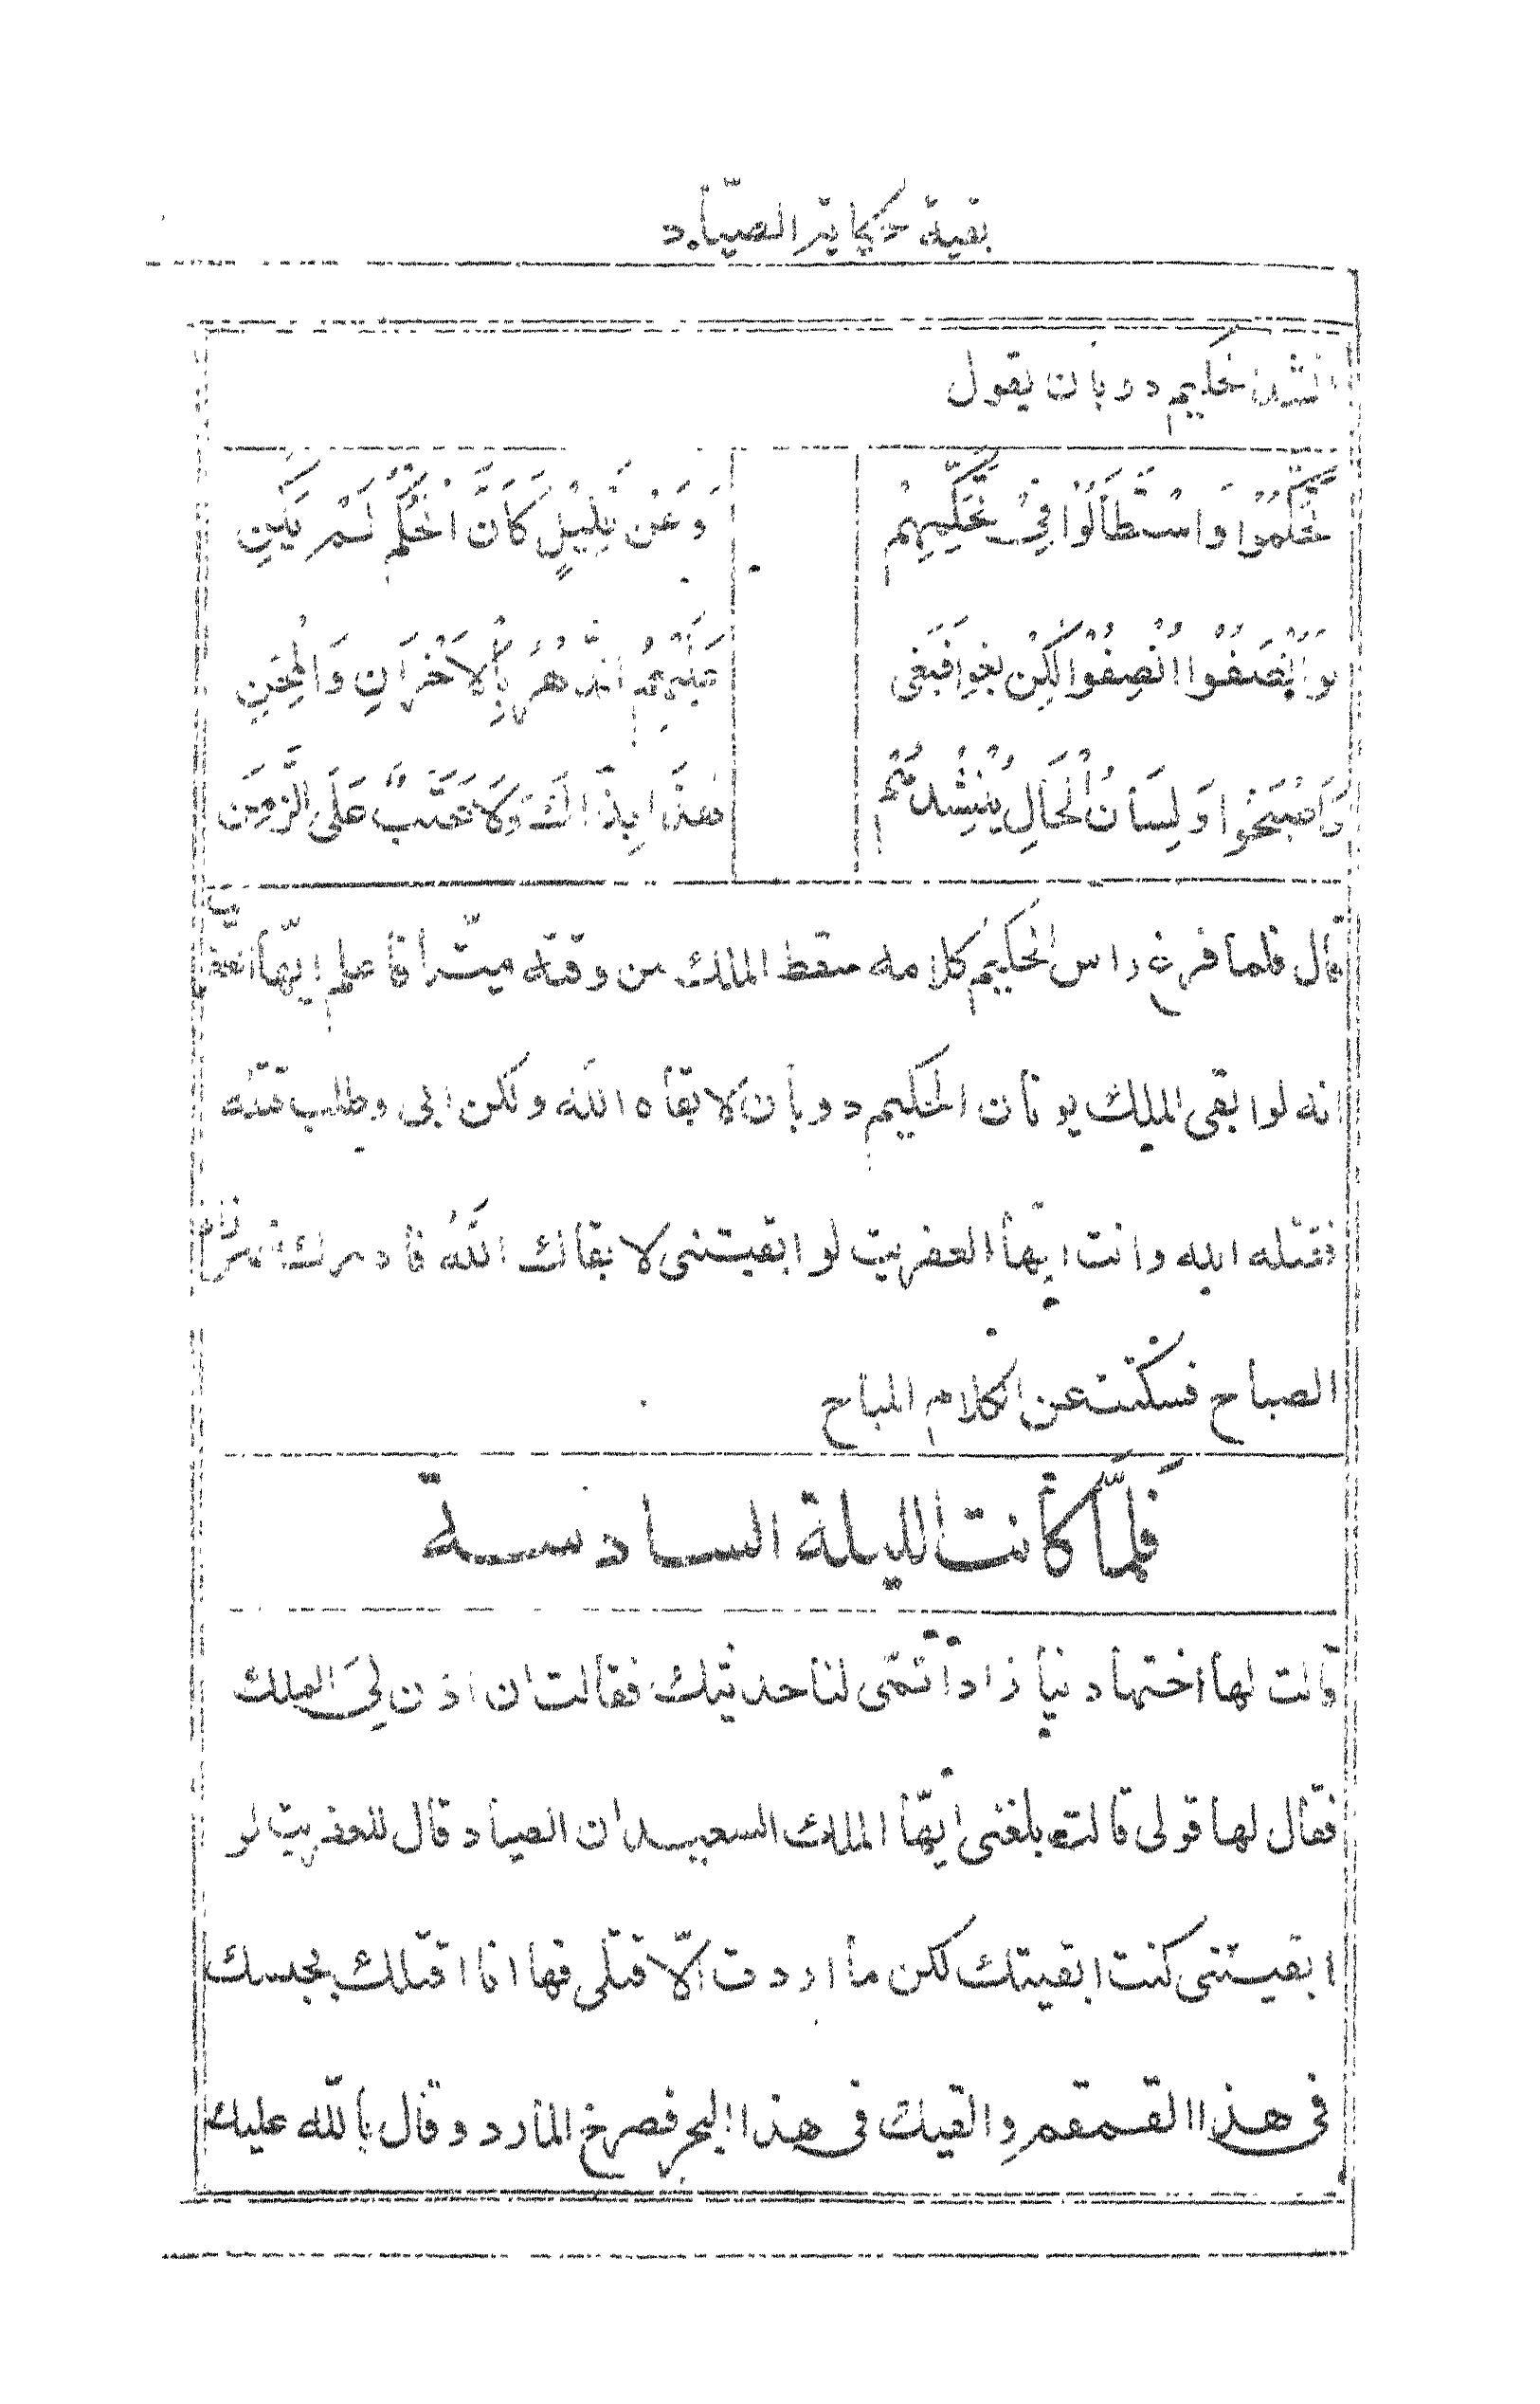 بقية حكاية الصيّاد
انشد حكيم دوبان يقول
تَحَكَّمُوْا وَاسْتَطَالُوْا فِيْ تَحَكُّمِهِمْ وَعَنْ قَلِيْلٍ كَأَنَّ الْحُكْمَ لَمْ يَكُنِ
لَوْ اَنْصَفُوْا اُنْصِفُوْا لٰكِنْ بَغَوْا فَبَغٰى عَلَيْهِمُ الدَّهْرُ بِالْاَحْزَانِ وَالْمِحَنِ
وَاَصْبَحُوْا وَلِسَانُ الْحَالِ يُنْشِدُهُمْ هٰذَا بِذَاكَ وَلَا عَتَبٌ عَلَى الزَّمَنِ
قال فلما فرغ راس الحكيم كلامه سقط الملك من وقته ميّتا فاعلم ايّها العفريت
انه لو ابقى الملك يونان الحكيم دوبان لابقاه الله ولكن ابى وطلب قتله
فقتله الله وانت ايّها العفريت لو ابقيتنى لابقاك اللهُ فادرك شهرزاد
الصباح فسكتت عن الكلام المباح
فَلمَّا كانت الليلة السادسة
قالت لها اختها دنيا زاد اتمّى لنا حديثك فقالت ان اذن لِىَ الملك
فقال لها قولى قالت بلغنى ايّها الملك السعيد ان الصياد قال للعفريت لو
ابقيتنى كنت ابقيتك لكن ما اردت الّا قتلى فها انا اقتلك بحبسك
فى هذا القمقم والقيك فى هذا البحر فصرخ المارد وقال بالله عليك